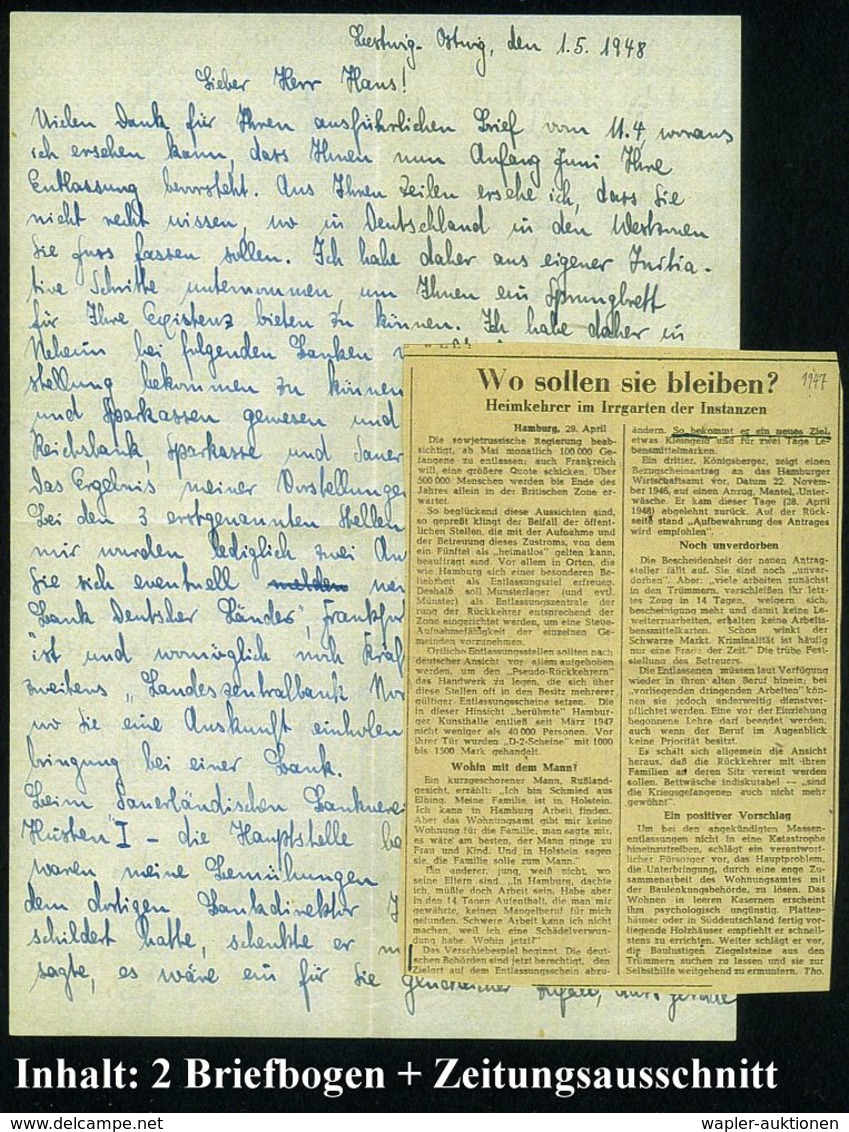 Bestwig-Ostwig, den 1.5.1948
Lieber Herr Haus!
Vielen Dank für Ihren ausführlichen Brief vom 11.4, woraus
ich ersehen kann, dass Ihnen nun Anfang Juni Ihre
Entlassung bevorsteht. Aus Ihren Zeilen ersehe ich, dass Sie
nicht recht wissen, wo in Deutschland in den Westzonen
Sie fuss fassen sollen. Ich habe daher aus eigener Initia-
tive Schritte unternommen, um Ihnen ein Sprungbrett
für Ihre Existenz bieten zu können. Ich habe daher in
Neheim bei folgenden Banken
stellung bekommen zu können
und Sparkassen gewesen und
Reichsbank, Sparkasse und Sauer
Das Ergebnis meiner Vorstellungen
Bei den 3 erstgenannten Stellen
mir wurden lediglich zwei An
Sie sich eventuell melden
Bank Deutsher Länder, Frankfur
ist und womöglich noch Kraf
zweitens "Landeszentralbank Nor
wo Sie eine Auskunft einholen
bringung bei einer Bank.
Beim Sauerländischen Bankverei
Hüsten I - die Hauptstelle
waren meine Bemühungen
dem dortigen Bankdirektor
schildert hatte, schenkte er
sagte, es wäre ein für Sie glücklicher Zufall, dass gerade
Wo sollen sie bleiben? 1947
Heimkehrer im Irrgarten der Instanzen
Hamburg, 29. April
Die sowjetrussische Regierung beab-
sichtigt, ab Mai monatlich 100 000 Ge-
fangene zu entlassen; auch Frankreich
will, eine größere Quote schicken. Über
500 000 Menschen werden bis Ende des
Jahres allein in der Britischen Zone er-
wartet.
So beglückend diese Aussichten sind,
so gepreßt klingt der Beifall der öffent-
lichen Stellen, die mit der Aufnahme und
der Betreuung dieses Zustroms, von dem
ein Fünftel als „heimatlos" gelten kann,
beauftragt sind. Vor allem in Orten, die
wie Hamburg sich einer besonderen Be-
liebtheit als Entlassungsziel erfreuen.
Deshalb soll Munsterlager (und evtl.
Münster) als Entlassungszentrale der
rung der Rückkehrer entsprechend der
Zone eingerichtet werden, um eine Steue-
Aufnahmefähigkeit der einzelnen Ge-
meinden vorzunehmen.
Örtliche Entlassungsstellen sollten nach
deutscher Ansicht vor allem aufgehoben
werden, um den „Pseudo-Rückkehrern"
das Handwerk zu legen, die sich über
diese Stellen oft in den Besitz mehrerer
gültiger Entlassungsscheine setzen. Die
in dieser Hinsicht „berühmte" Hambur-
ger Kunsthalle entließ seit März 1947
nicht weniger als 40 000 Personen. Vor
ihrer Tür wurden „D-2-Scheine" mit 1000
bis 1500 Mark gehandelt.
Wohin mit dem Mann?
Ein kurzgeschorener Mann, Rußland-
gesicht, erzählt: „Ich bin Schmied aus
Elbing. Meine Familie ist in Holstein.
Ich kann in Hamburg Arbeit finden.
Aber das Wohnungsamt gibt mir keine
Wohnung für die Familie, man sagte mir,
es wäre am besten, der Mann ginge zu
Frau und Kind. Und in Holstein sagen
sie, die Familie solle zum Mann."
Ein anderer, jung, weiß nicht, wo
seine Eltern sind. „In Hamburg, dachte
ich, müßte doch Arbeit sein. Habe aber
in den 14 Tagen Aufenthalt, die man mir
gewährte, keinen Mangelberuf für mich
gefunden. Schwere Arbeit kann ich nicht
machen, weil ich eine Schädelverwun-
dung habe. Wohin jetzt?"
Das Verschiebespiel beginnt. Die deut-
schen Behörden sind jetzt berechtigt, den
Zielort auf dem Entlassungsschein abzu-
ändern. So bekommt er ein neues Ziel,
etwas Kleingeld und für zwei Tage Le-
bensmittelmarken.
Ein dritter, Königsberger, zeigt einen
Bezugscheinantrag an das Hamburger
Wirtschaftsamt vor, Datum 22. Novem-
ber 1946, auf einen Anzug, Mantel, Unter-
wäsche. Er kam dieser Tage (28. April
1948) abgelehnt zurück. Auf der Rück-
seite stand „Aufbewahrung des Antrages
wird empfohlen".
Noch unverdorben
Die Bescheidenheit der neuen Antrag-
steller fällt auf. Sie sind noch „unver-
dorben". Aber: „viele arbeiten zunächst
in den Trümmern, verschleißen ihr letz-
tes Zeug in 14 Tagen, weigern sich,
bescheinigung mehr und damit keine Le-
weiterzuarbeiten, erhalten keine Arbeits-
bensmittelkarten. Schon winkt der
Schwarze Markt. Kriminalität ist häufig
nur eine Frage der Zeit." Die trübe Fest-
stellung des Betreuers.
Die Entlassenen müssen laut Verfügung
wieder in ihren alten Beruf hinein; bei
„vorliegenden dringenden Arbeiten" kön-
nen sie jedoch anderweitig dienstver-
pflichtet werden. Eine vor der Einziehung
begonnene Lehre darf beendet werden,
auch wenn der Beruf im Augenblick
keine Priorität besitzt.
Es schält sich allgemein die Ansicht
heraus, daß die Rückkehrer mit ihren
Familien an deren Sitz vereint werden
sollen. Bettwäsche indiskutabel — „sind
die Kriegsgefangenen auch nicht mehr
gewöhnt".
Ein positiver Vorschlag
Um bei den angekündigten Massen-
entlassungen nicht in eine Katastrophe
hineinzutreiben, schlägt ein verantwort-
licher Fürsorger vor, das Hauptproblem,
die Unterbringung, durch eine enge Zu-
sammenarbeit des Wohnungsamtes mit
der Baulenkungsbehörde, zu lösen. Das
Wohnen in leeren Kasernen erscheint
ihm psychologisch ungünstig. Platten-
häuser oder in Süddeutschland fertig vor-
liegende Holzhäuser empfiehlt er schnell-
stens zu errichten. Weiter schlägt er vor,
die Baulustigen Ziegelsteine aus den
Trümmern suchen zu lassen und sie zur
Selbsthilfe weitgehend zu ermuntern. Tho.
Inhalt: 2 Briefbogen + Zeitungsausschnitt
www.stampcircuit.com
wapler-auktionen